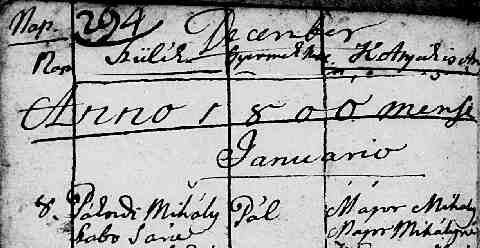 Nap. 294 December
Nap Szülék Gyermekek
Anno 1800 mense
Januario
8. Pálodi Mihály Pál Major Mihály
Szabo Sára Major Mihályné